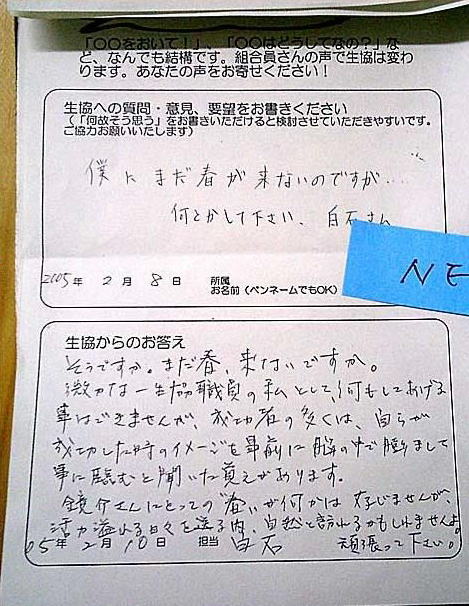 「〇〇をおいて！」、「〇〇はどうしてなの？」な
ど、なんでも結構です。組合員さんの声で生協は変わ
ります。あなたの声をお寄せください！
生協への質問・意見、要望をお書きください
（「何故そう思う」をお書きいただけると検討させていただきやすいです。
ご協力お願いいたします）
僕にまだ春が来ないのですが....
何とかして下さい、白石さん
2005年 2月 8日 所属
お名前（ペンネームでもOK）
NE
生協からのお答え
そうですか。まだ春、来ないですか。
微力な一生協職員の私として、何もしてあげる
事はできませんが、成功者の多くは、自らが
成功した時のイメージを事前に脳の中で
事に臨むと聞いた覚えがあります。
鏡介さんにとっての"春"が何かは存じませんが、
活力溢れる日々を送る内、自然と訪れるかもしれませんよ。
05年 2月 10日 担当 白石 頑張って下さい。